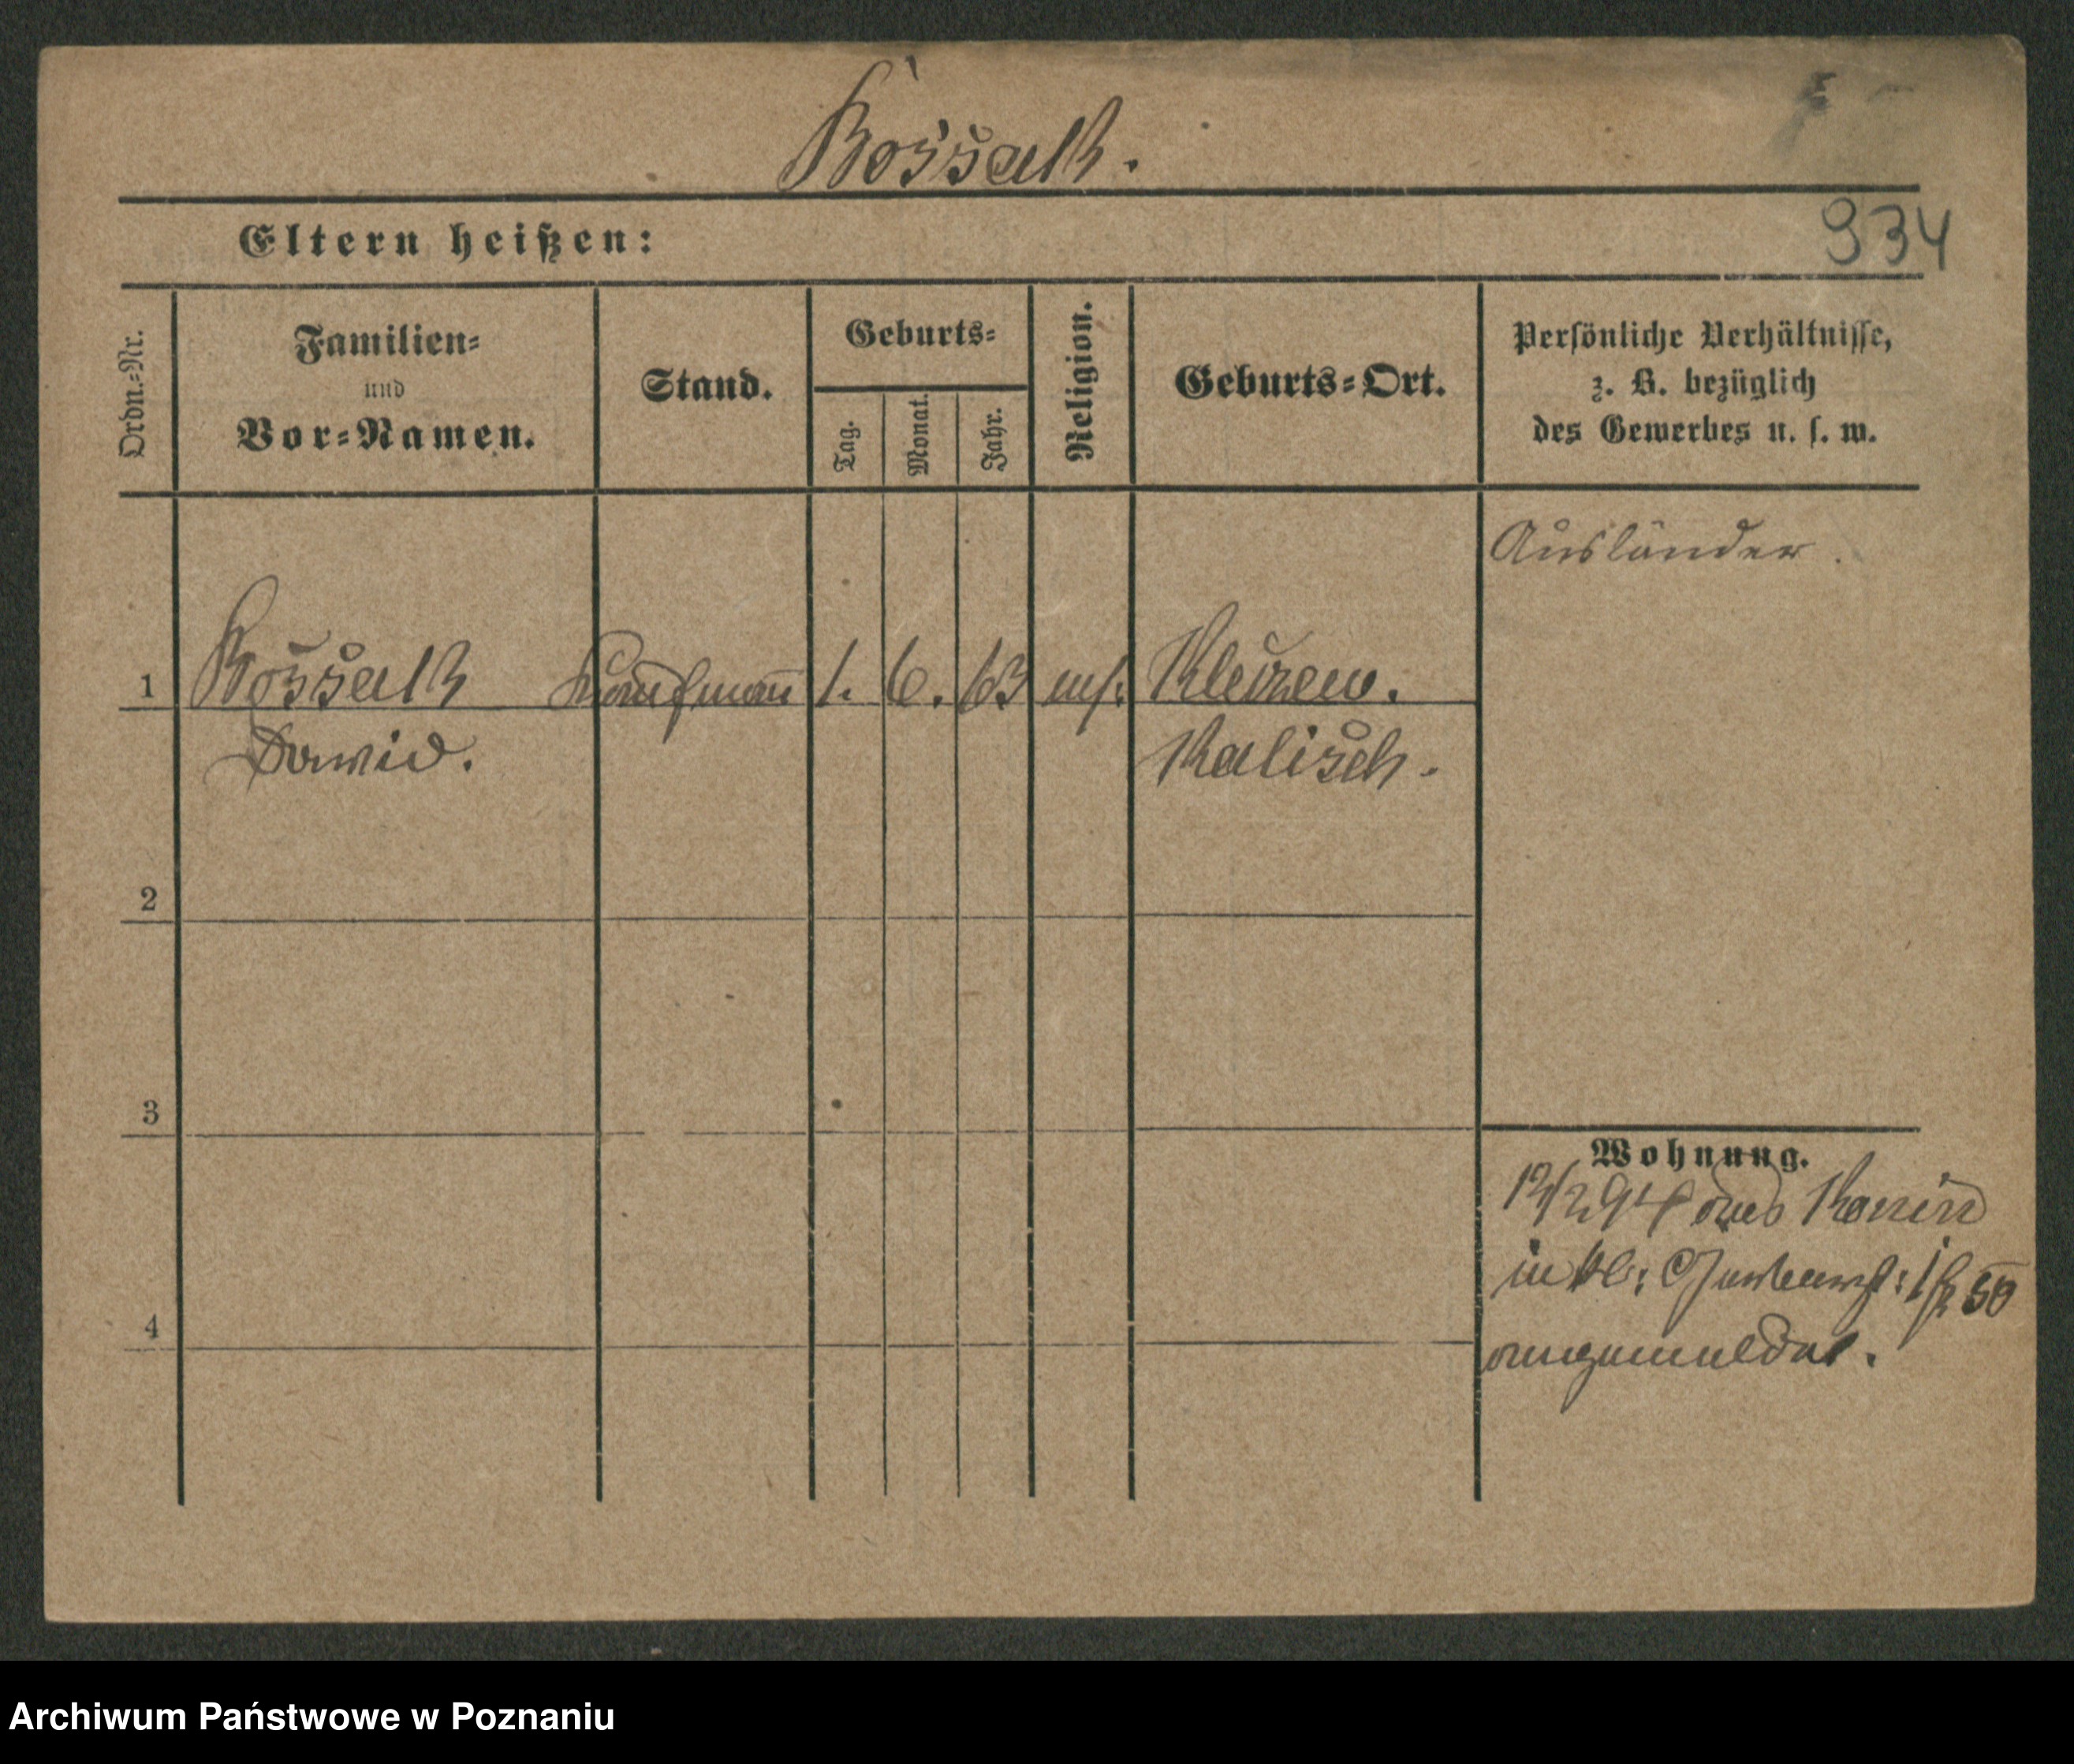 Kossak.
Eltern heißen:
934
Ordn.=Nr.
Familien=
und
Vor=Namen.
Stand.
Geburts=
Tag.
Monat.
Jahr.
Religion.
Geburts=Ort.
Persönliche Verhältnisse,
z. B. bezüglich
des Gewerbes u. s. w.
Ausländer.
1
Kossak Kaufmann 1. 6. 63 Kleczew.
Dawid. Kalisch.
2
3
4
Wohnung.
94 aus Konin
in
angemeldet.
Archiwum Państwowe w Poznaniu